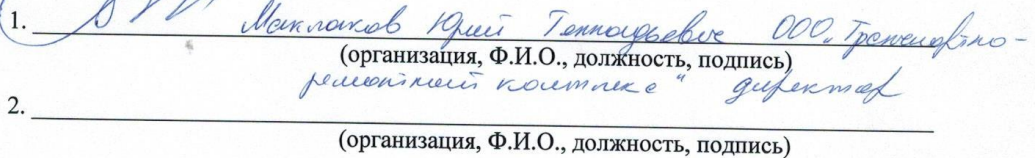 1. Маклаков Юрий Геннадьевич ООО „Транспортно-
(организация, Ф.И.О., должность, подпись)
ремонтный комплекс“ директор
2.
(организация, Ф.И.О., должность, подпись)